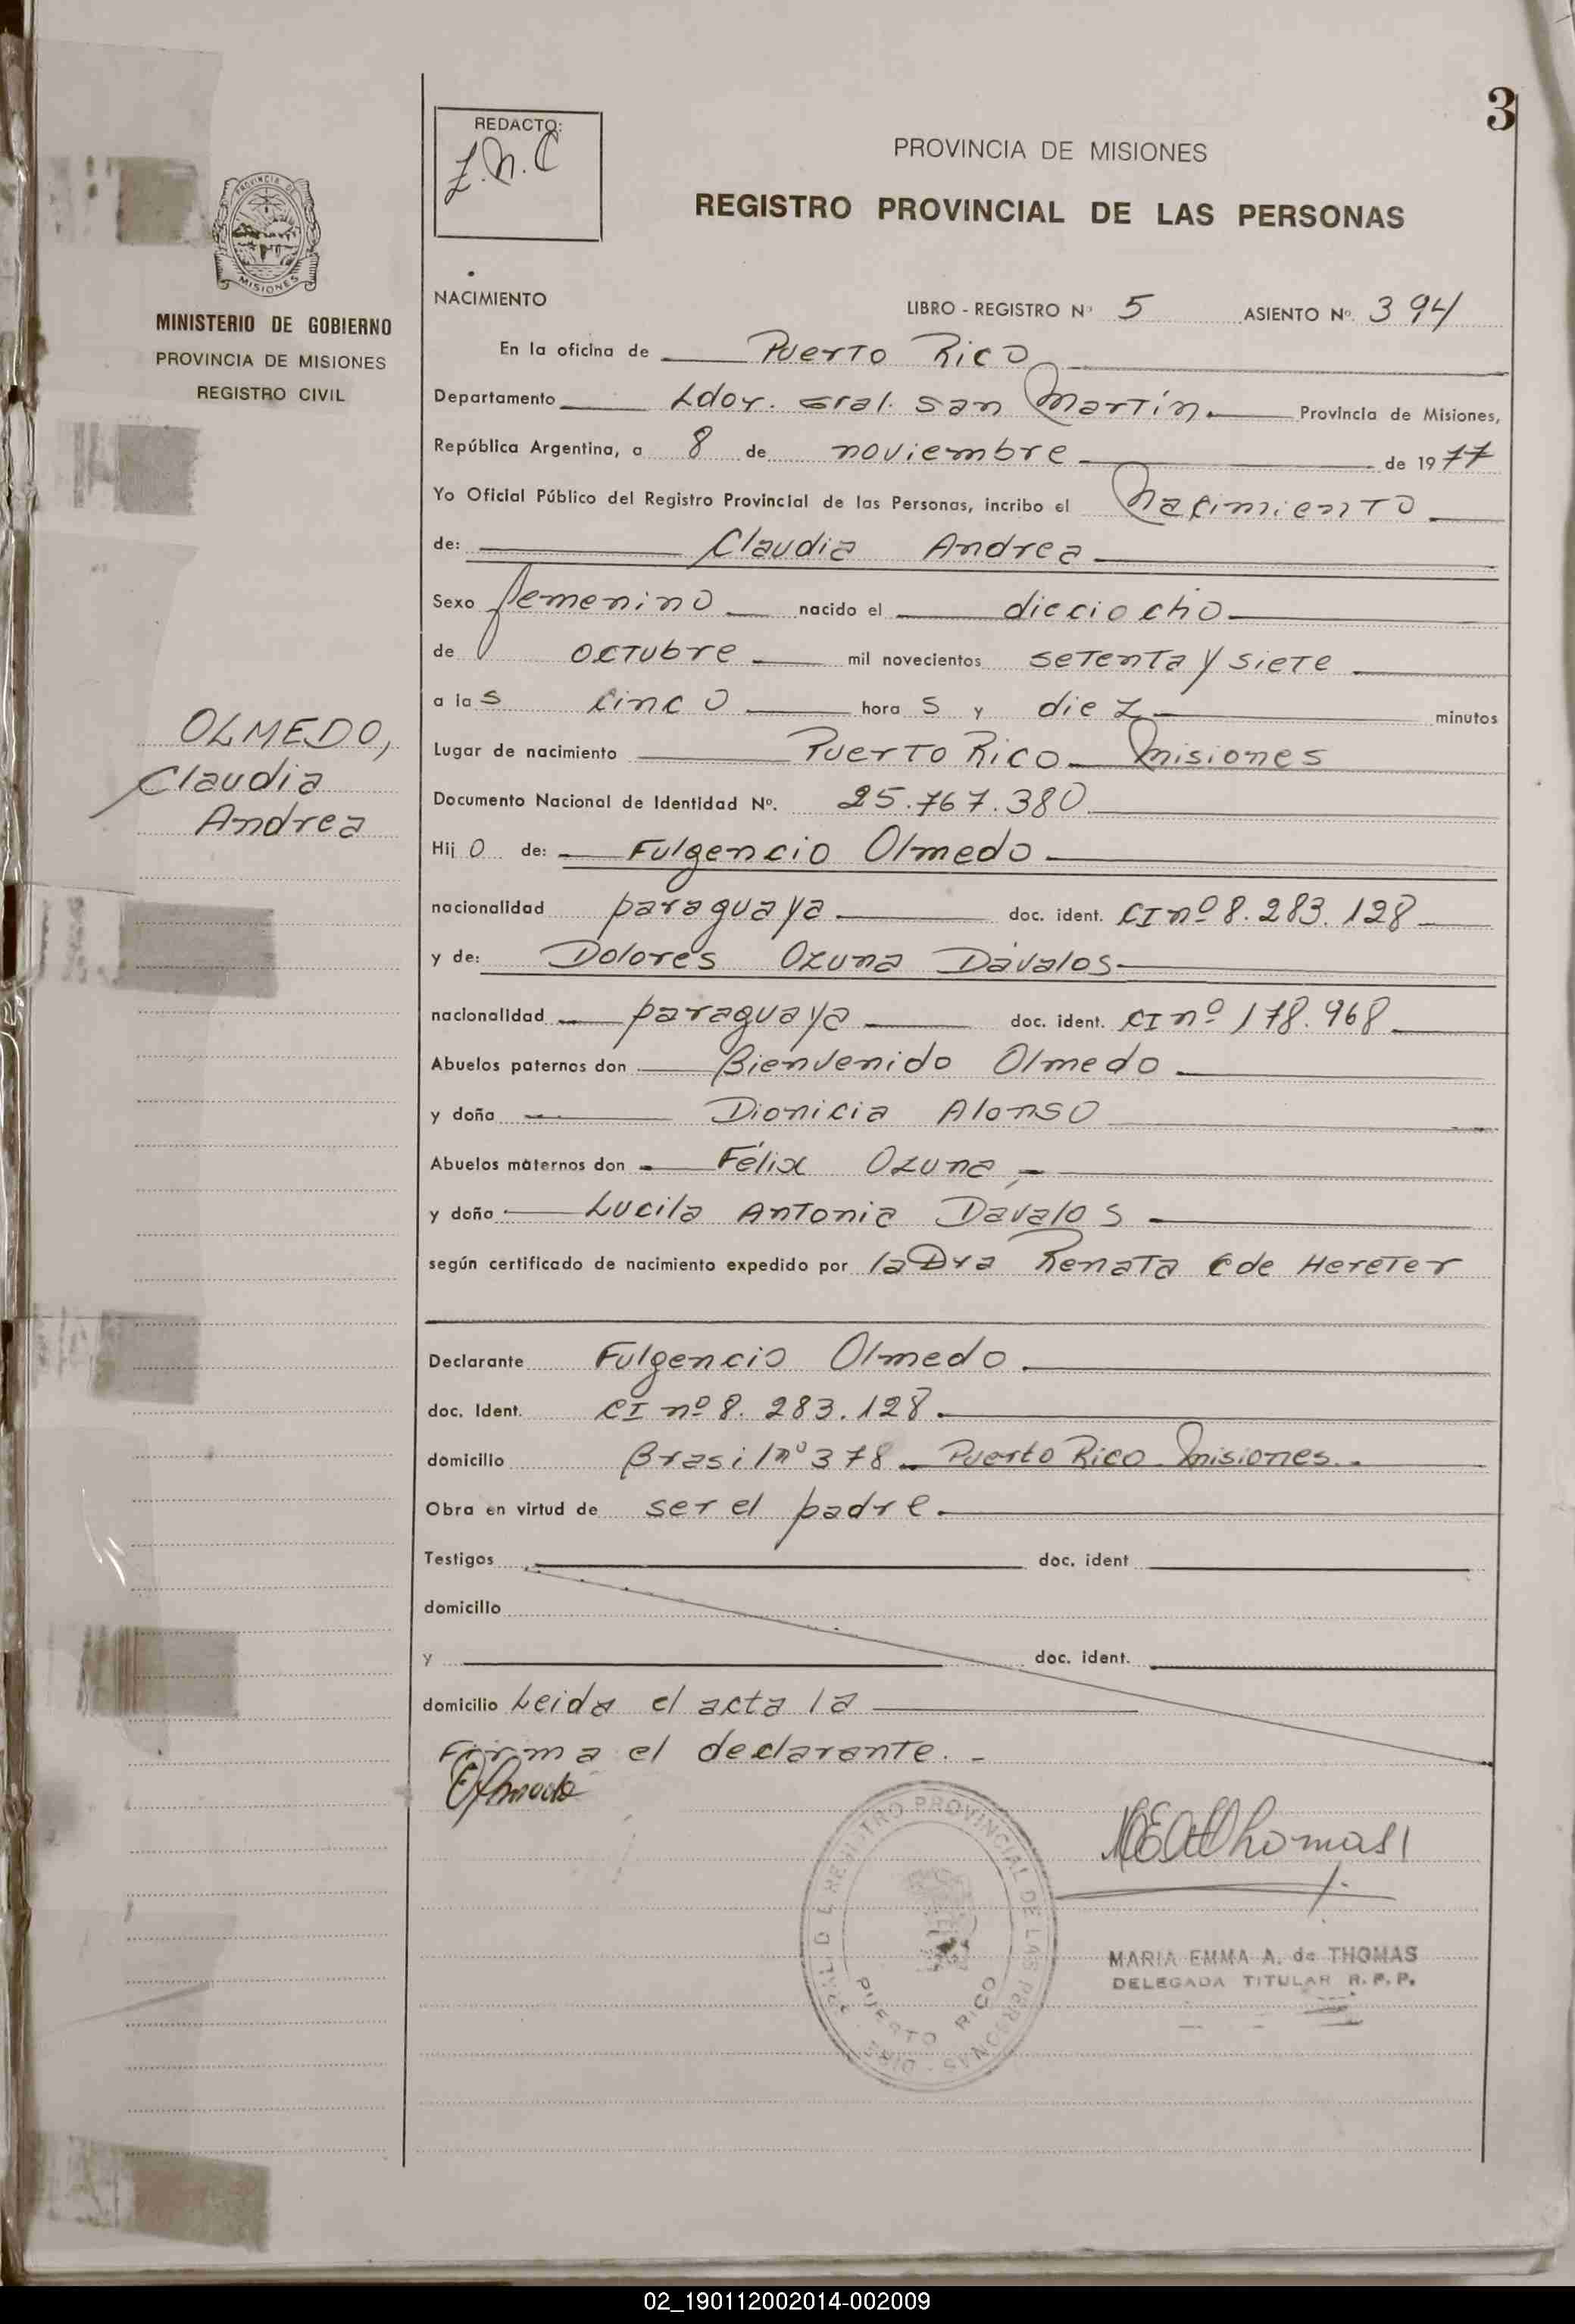 3
REDACTO:
PROVINCIA DE MISIONES
REGISTRO PROVINCIAL DE LAS PERSONAS
PROVINCIA DE
MISIONES
MINISTERIO DE GOBIERNO
PROVINCIA DE MISIONES
REGISTRO CIVIL
OLMEDO,
Claudia
Andrea
NACIMIENTO
LIBRO - REGISTRO Nº 5 ASIENTO Nº. 394
En la oficina de Puerto Rico
Departamento Ldor. Gral. San Martín. Provincia de Misiones,
República Argentina, a 8 de noviembre de 1977
Yo Oficial Público del Registro Provincial de las Personas, incribo el Nacimiento
de: Claudia Andrea
Sexo femenino nacido el dieciocho
de octubre mil novecientos setenta y siete
a las cinco horas y diez minutos
Lugar de nacimiento Puerto Rico Misiones
Documento Nacional de Identidad Nº. 25.767.380
Hijo de: Fulgencio Olmedo
nacionalidad paraguaya doc. ident. CI nº 8.283.128
y de: Dolores Ozuna Dávalos
nacionalidad paraguaya doc. ident. CI nº 178.968
Abuelos paternos don Bienvenido Olmedo
y doña Dionicia Alonso
Abuelos maternos don Félix Ozuna
y doña Lucila Antonia Dávalos
según certificado de nacimiento expedido por la Dra Renata C de Hereter
Declarante Fulgencio Olmedo
doc. Ident. CI nº 8.283.128.
domicilio Brasil nº 378 Puerto Rico Misiones.
Obra en virtud de ser el padre.
Testigos doc. ident
domicilio
y doc. ident.
domicilio Leida el acta la
Firma el declarante.
DIRE. GRAL. DEL REGISTRO PROVINCIAL DE LAS PERSONAS
PUERTO RICO
MARIA EMMA A. de THOMAS
DELEGADA TITULAR R.P.P.
02_190112002014-002009